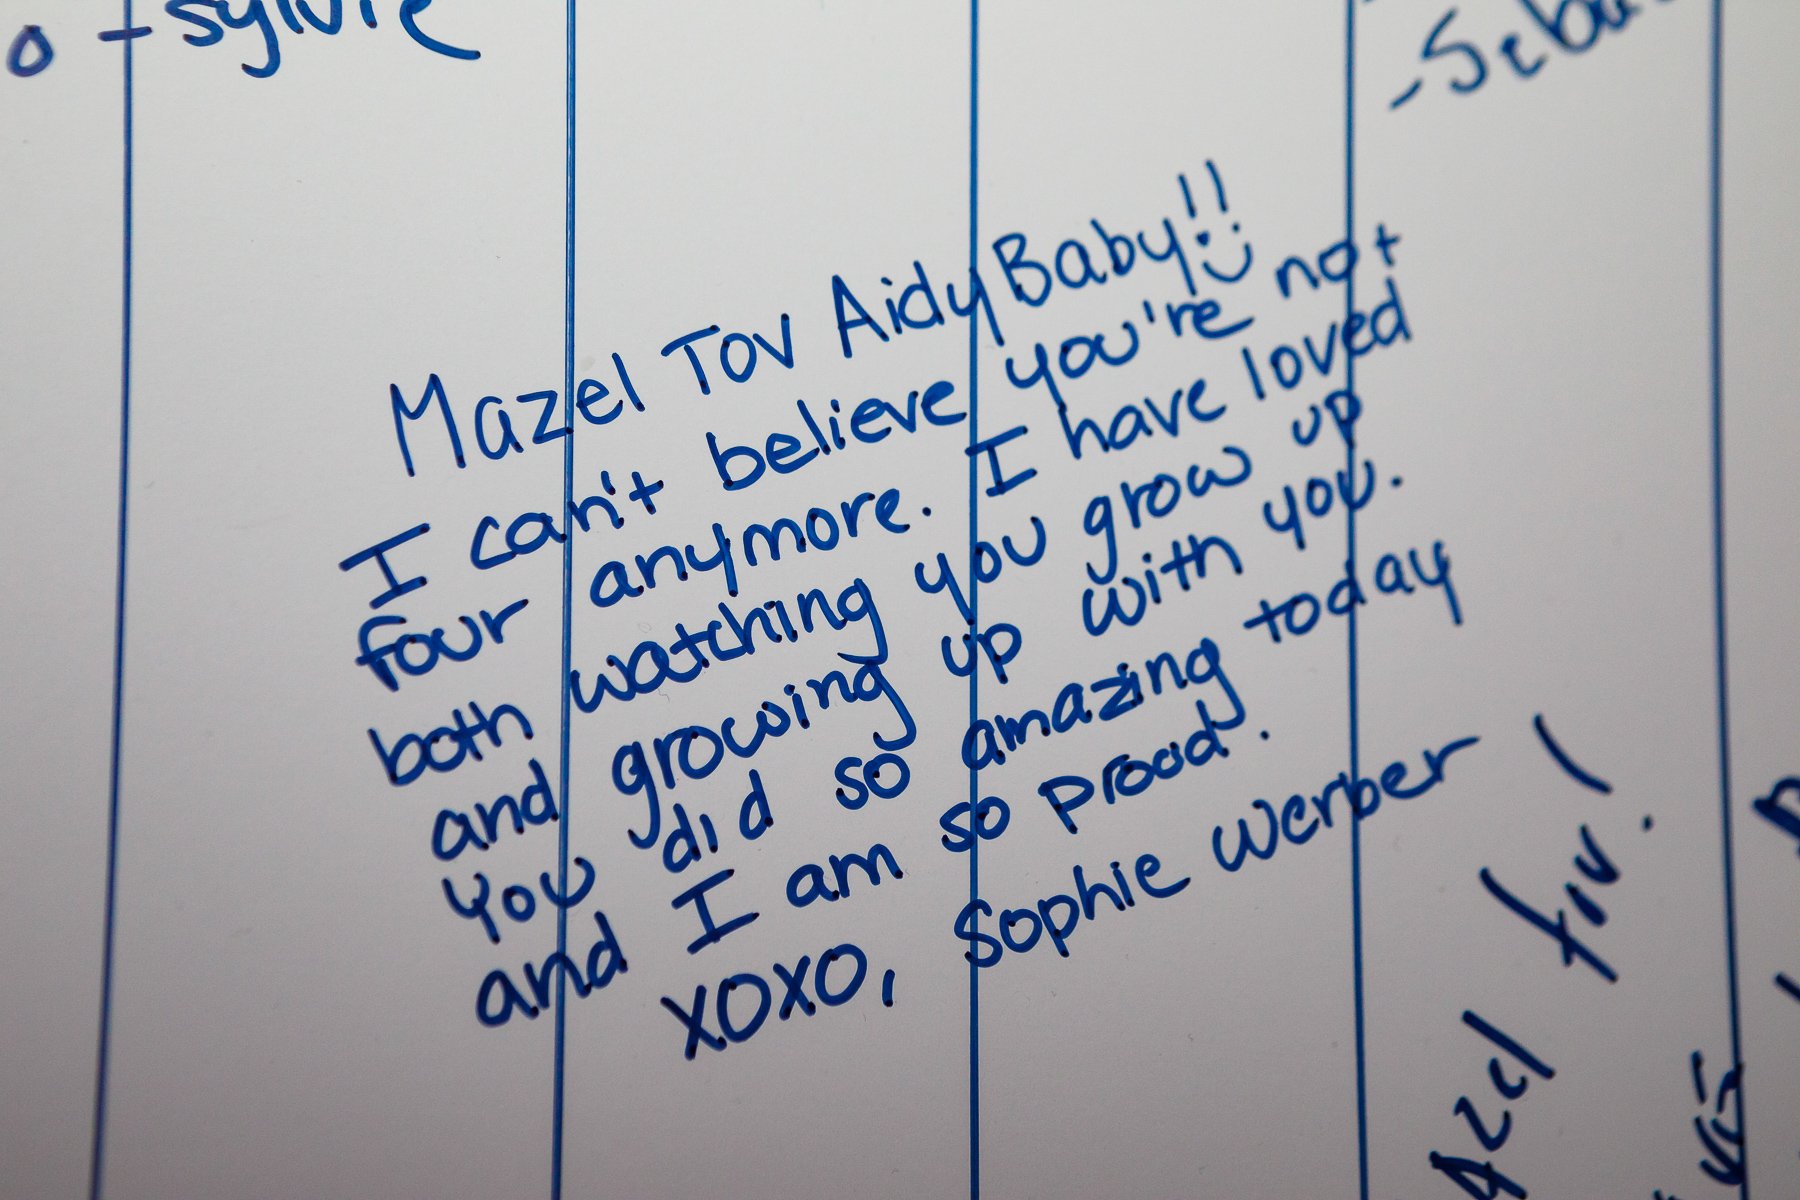 o - Sylvie
Mazel Tov Aidy Baby!! :)
I can't believe you're not
four anymore. I have loved
both watching you grow up
and growing up with you.
You did so amazing today
and I am so proud.
XOXO, Sophie Werber